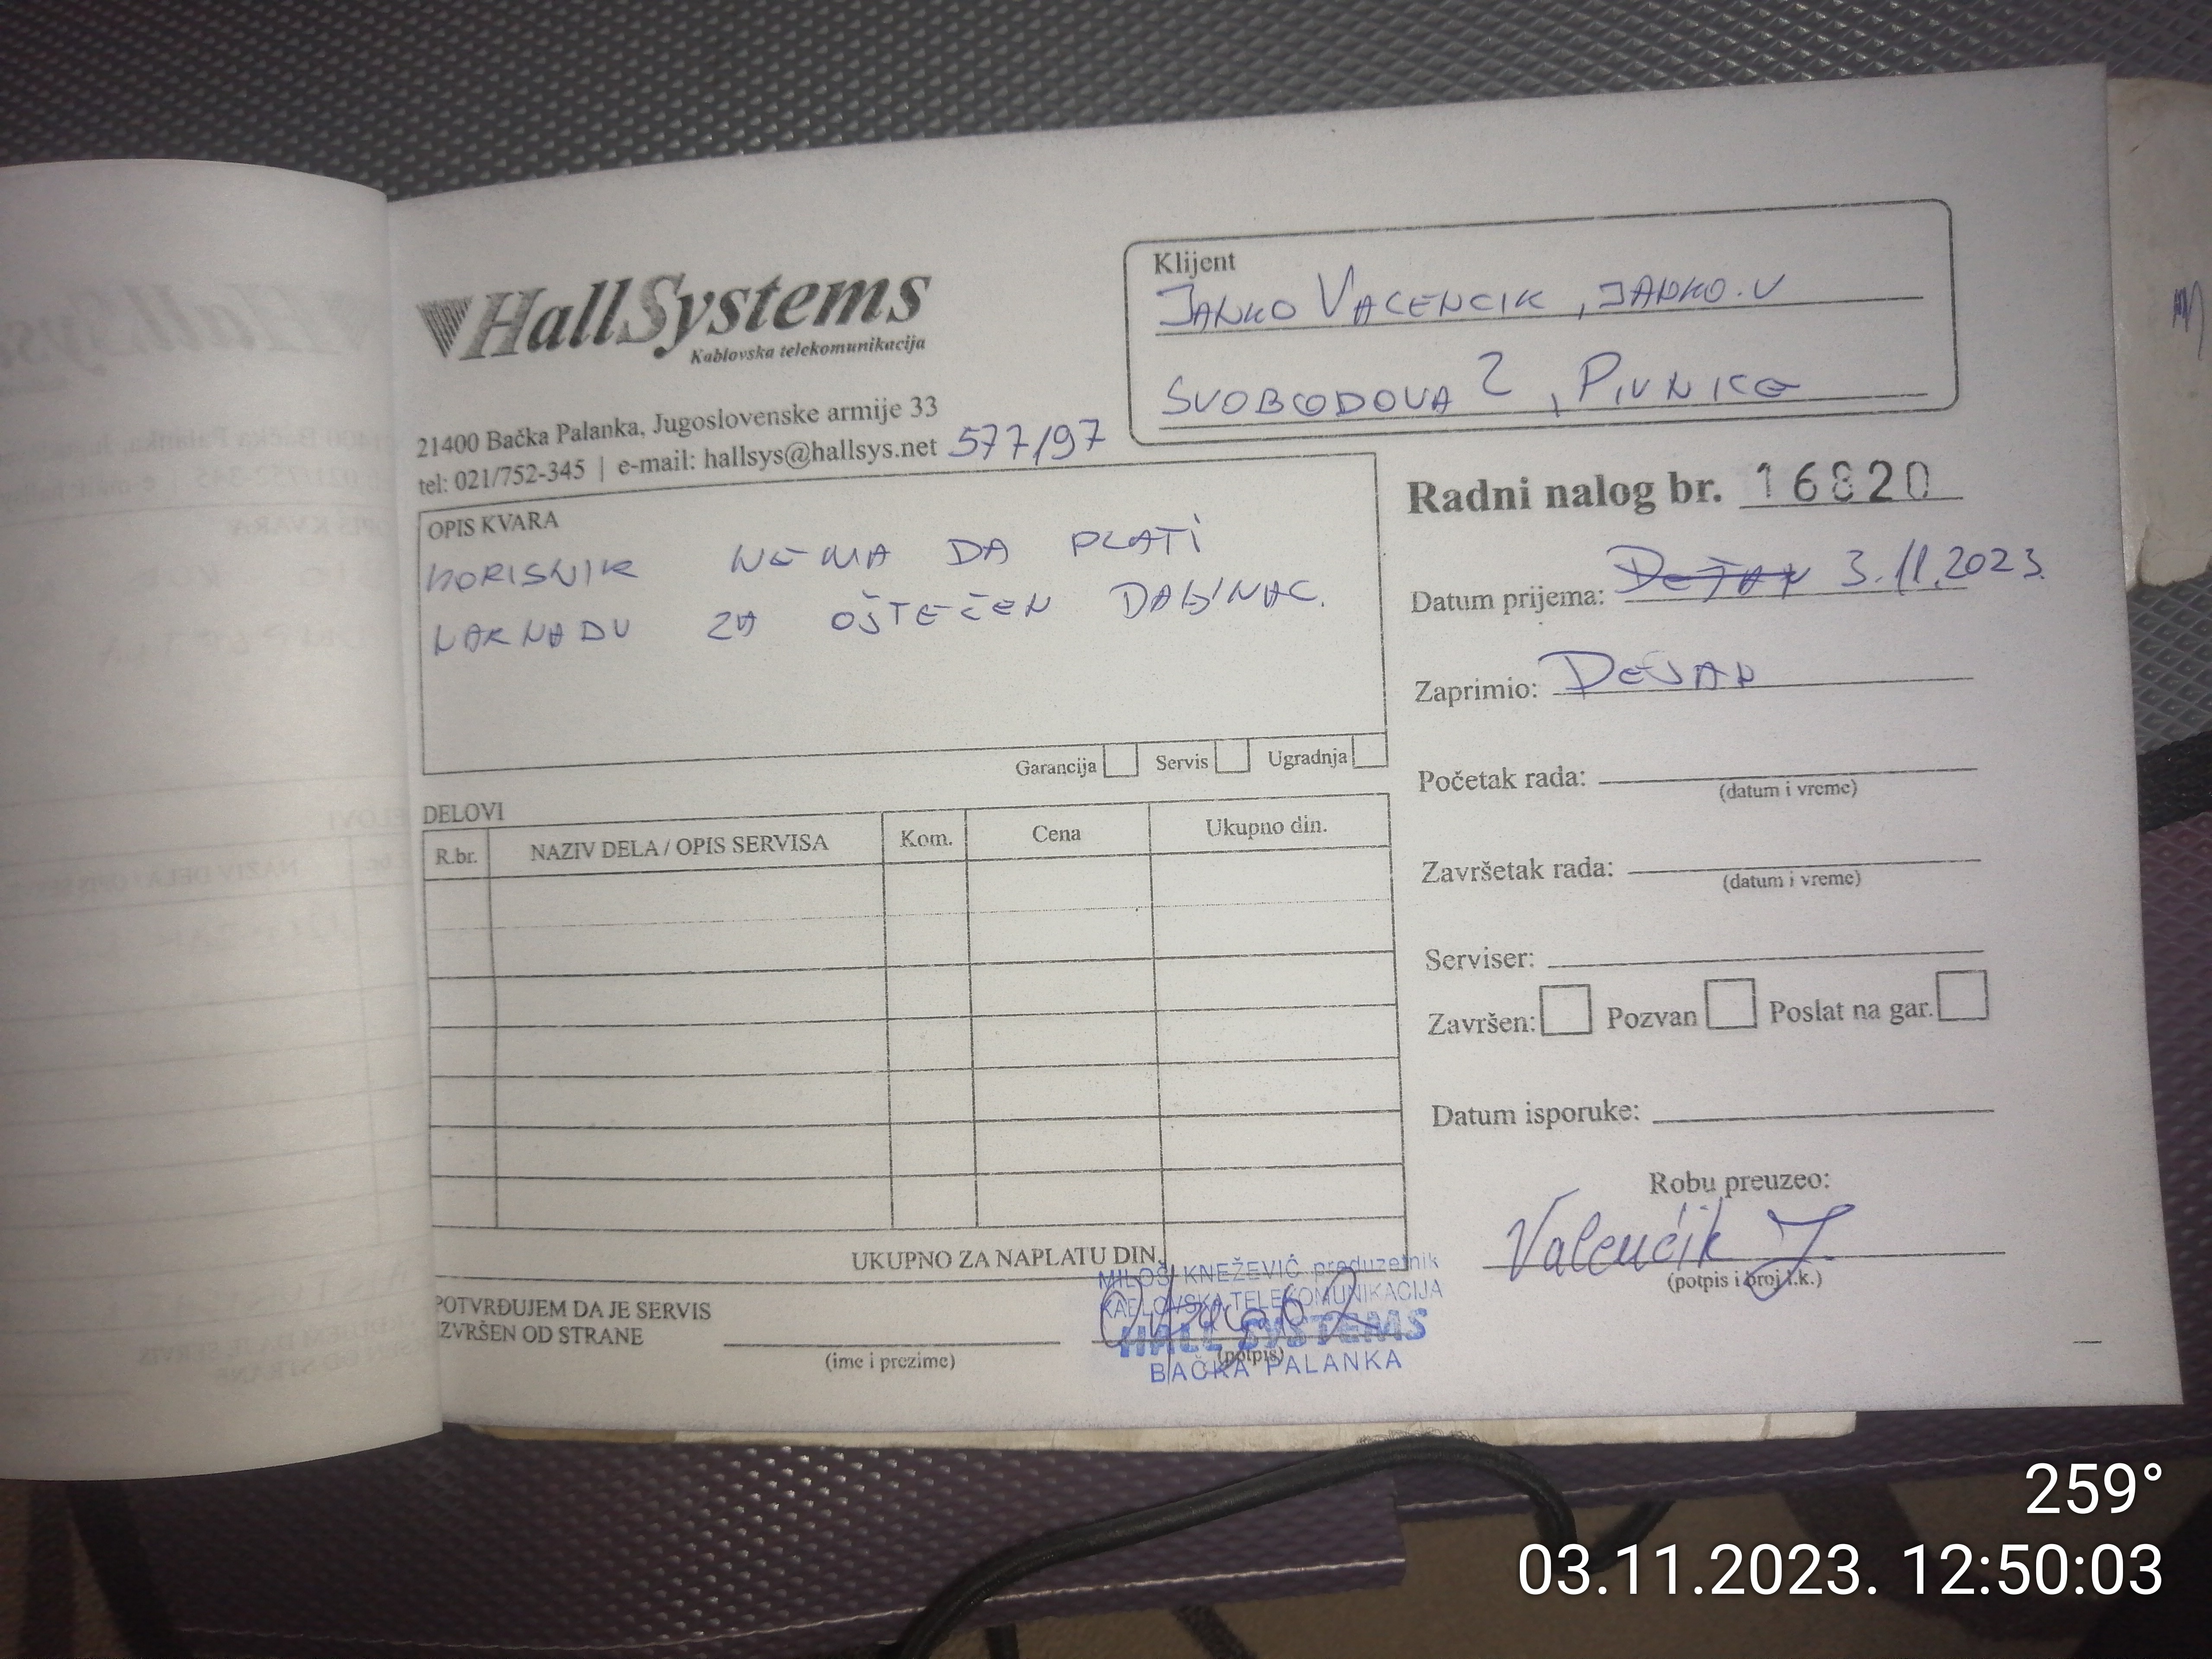 HallSystems
Kablovska telekomunikacija
21400 Bačka Palanka, Jugoslovenske armije 33
tel: 021/752-345 | e-mail: hallsys@hallsys.net 577/97
Klijent
JANKO VALENCIK, JANKO.V
SVOBODOVA 2, PIVNICE
OPIS KVARA
KORISNIK NEMA DA PLATI
NAKNADU ZA OŠTEĆEN
Garancija Servis Ugradnja
Radni nalog br. 16820
Datum prijema: 3.11.2023.
Zaprimio: DEJAN
Početak rada:
(datum i vreme)
Završetak rada:
(datum i vreme)
Serviser:
Završen: Pozvan Poslat na gar.
Datum isporuke:
Robu preuzeo:
Valenčik J.
(potpis i broj l.k.)
DELOVI
R.br. NAZIV DELA / OPIS SERVISA Kom. Cena Ukupno din.
UKUPNO ZA NAPLATU DIN.
POTVRĐUJEM DA JE SERVIS
IZVRŠEN OD STRANE
(ime i prezime)
(potpis)
MILOŠ KNEŽEVIĆ preduzetnik
KABLOVSKA TELEKOMUNIKACIJA
HALL SYSTEMS
BAČKA PALANKA
259°
03.11.2023. 12:50:03